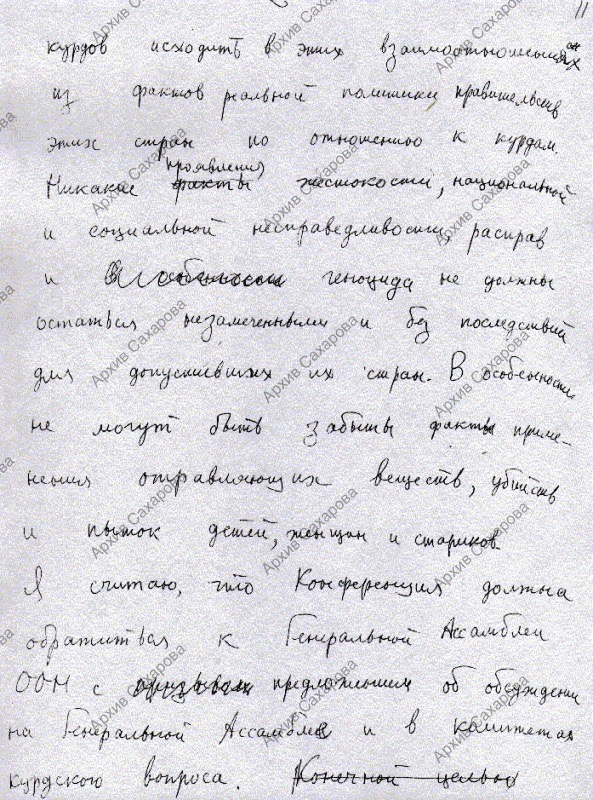 11
курдов исходить в этих взаимоотношениях
из фактов реальной политики правительств
этих стран по отношению к курдам.
Никакие факты проявления жестокости, национальной
и социальной несправедливости, расправ
и особенности геноцида не должны
остаться незамеченными и без последствий
для допустивших их стран. В особенности
не могут быть забыты факты приме-
нения отравляющих веществ, убийств
и пыток детей, женщин и стариков.
Я считаю, что Конференция должна
обратиться к Генеральной Ассамблеи
ООН с призывом предложением об обсуждении
на Генеральной Ассамблее и в комитетах
курдского вопроса. Конечной целью
Архив Сахарова